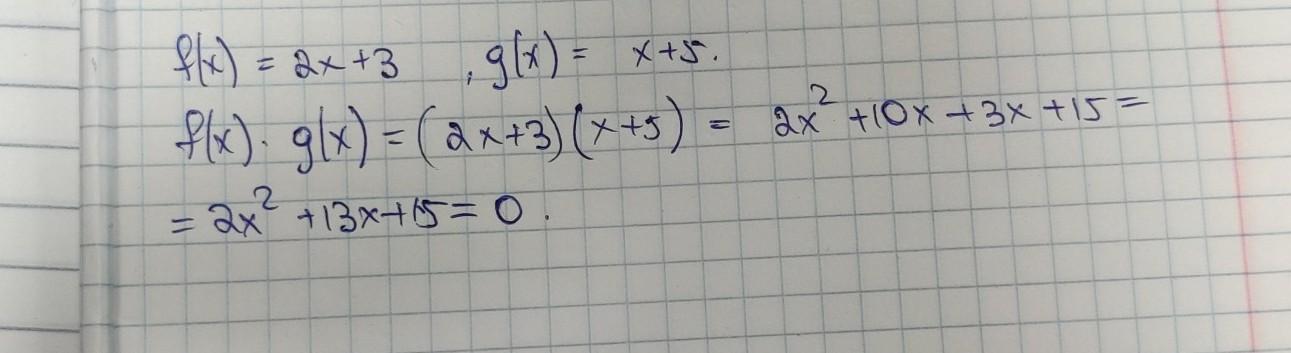 f(x) = 2x+3 , g(x) = x+5.
f(x) · g(x) = (2x+3)(x+5) = 2x² +10x +3x +15 =
= 2x² +13x+15 = 0 .